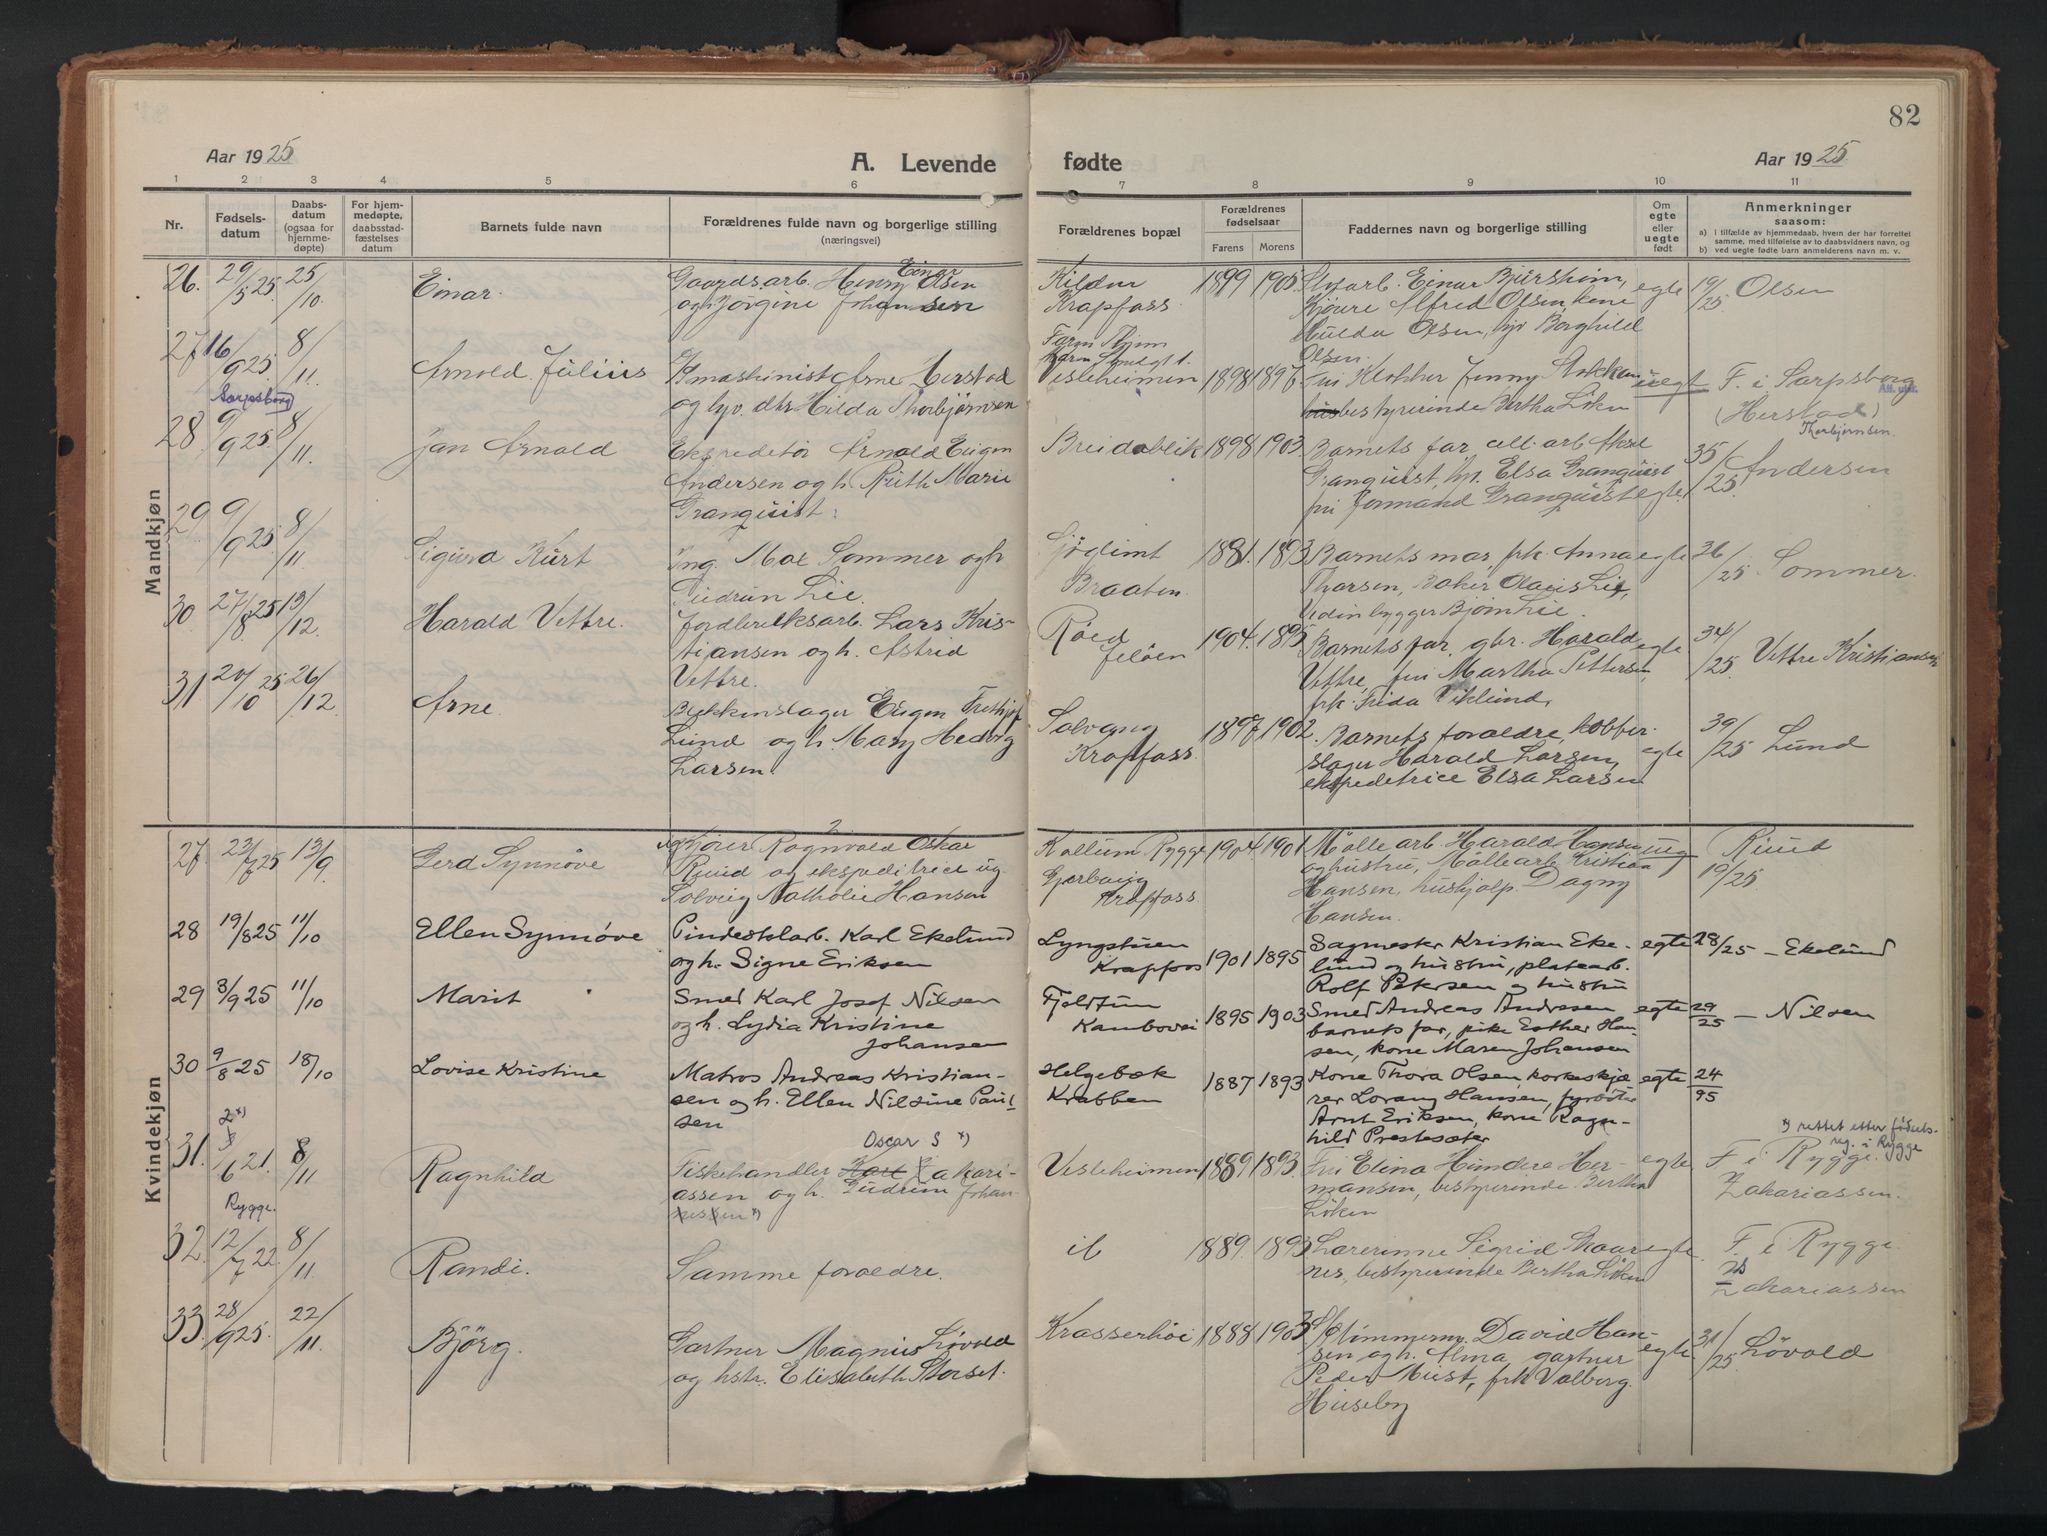 82
Aar 1925
A. Levende
fødte
Aar 1925
1 2 3 4 5 6 7 8 9 10 11
Nr.
Fødsels-
datum
Daabs-
datum
(ogsaa for
hjemme-
døpte)
For hjem-
medøpte,
daabsstad-
fæstelses
datum
Barnets fulde navn
Forældrenes fulde navn og borgerlige stilling
(næringsvei)
Forældrenes bopæl
Forældrenes
fødselsaar
Farens Morens
Faddernes navn og borgerlige stilling
Om
egte
eller
uegte
født
Anmerkninger
saasom:
a) I tilfælde av hjemmedaab, hvem der har forrettet
samme, med tilføielse av to daabsvidners navn, og
b) ved uegte fødte barn anmelderens navn m. v.
Mandkjøn
26. 29/5 25 25/10 Einar.
Gaardsarb. Henry Einar Olsen
og h. Jørgine Johansen
Kildun
Krapfoss
1899 1905
Einar Bjersheim,
Alfred Olsen, kone
Hulda Olsen, Borghild
Olsen.
egte 19/25 Olsen
27 16/9 25 8/11 Arnold Julius
Sarpsborg
maskinist Arne Herstad
og Hilda Thorbjørnsen
Vesleheimen
1898 1897
Fru Klokker Jenny
bestyrerinde Bertha Løken
uegt F. i Sarpsborg
(Herstad)
Thorbjørnsen.
28 9/9 25 8/11. Jan Arnold
Ekspeditør Arnold Eugen
Andersen og h. Ruth Marie
Granquist.
Breidablik 1898 1903
Barnets far, cell. arb. Aksel
Granquist, Elsa Granquist
fru Jormand Granquist
egte. 35/25. Andersen
29 9/9 25 8/11 Sigurd Kurt
Ing. Max Sommer og h
Gudrun Lie.
Sjøglimt
Braaten.
1881. 1893
Barnets mor, frk. Anna
Thorsen, baker Olaus Lie,
Bjørn Lie.
egte 36/25 Sommer.
30 27/8 25 13/12. Harald Vettre.
Lars Kris-
tiansen og h. Astrid
Vettre.
Røed
Jeløen
1904. 1895
Barnets far, gbr. Harald
Vettre, fru Martha Pettersen,
frk. Frida Viklund,
egte 34/25 Vettre Kristiansen
31 20/10 25 26/12. Arne.
Blikkenslager Eugen Frithjof
Lund og h. Mary Hedvig
Larsen.
Solvang
Krapfoss.
1897 1902.
Barnets foraldre, kobber-
slager Harald Larsen,
ekspeditrice Elsa Larsen
egte 39/25 Lund
Kvindekjøn
27. 23/7 25 13/9 Gerd Synnøve
Ragnvald Oskar
Ruud og ekspeditrice ug.
Solveig Nathalie Hansen
Kallum Rygge
Krapfoss
1904. 1901
Mølle arb. Harald Hansen
og hustru, Møllearb. Kristian
Hansen, hushjelp Dagny
Hansen.
ug Ruud
19/25
28 19/8 25 11/10 Ellen Synnøve
Karl Ekelund
og h. Signe Eriksen
Krapfos
1901 1895
Sagmester Kristian Eke-
lund og hustru, platearb.
Rolf Petersen og hustru
egte 28/25 - Ekelund
29 3/9 25 11/10 Marit
Smed Karl Josef Nilsen
og h. Lydia Kristine
Johansen
Fjeldtun
Kambovei
1895 1903
Smed Andreas Andresen
barnets far, pike Esther Han-
sen, kone Maren Johansen
egte 29/25 - Nilsen
30 9/8 25 18/10 Lovise Kristine
Matros Andreas Kristian-
sen og h. Ellen Nilsine Paul-
sen
Helgebæk
Krabben
1887 1893
Kone Thora Olsen, korkeskjæ-
rer Lorang Hansen, fyrbøter
Arnt Eriksen, kone Ragn-
hild Prestesæter
egte 24/95
31. 2x)/6 21. 8/11 Ragnhild
Rygge.
Oscar S x)
Fiskehandler Karl Zakari-
assen og h. Gudrun Johan-
nessen x)
Vesleheimen 1889 1893.
Fru Elina Hundere Her-
mansen, bestyrerinde Bertha
Løken
egte F. i Rygge.
Zakariassen.
x) rettet etter fødsels-
reg. i Rygge
32. 12/7 22. 8/11. Randi.
Samme foraldre.
ib 1889. 1893
Lærerinne Sigrid Skaar-
nes, bestyrerinde Bertha Løken
egte. F. i Rygge
Zakariassen
33. 28/9 25. 22/11. Bjørg.
Gartner Magnus Løvold
og hstr. Elisabeth Storset.
Krasserhøi 1888 1903
David Han-
sen og h. Alma, gartner
Peder Must, frk Valborg
Huseby
egte. 31/25 Løvold